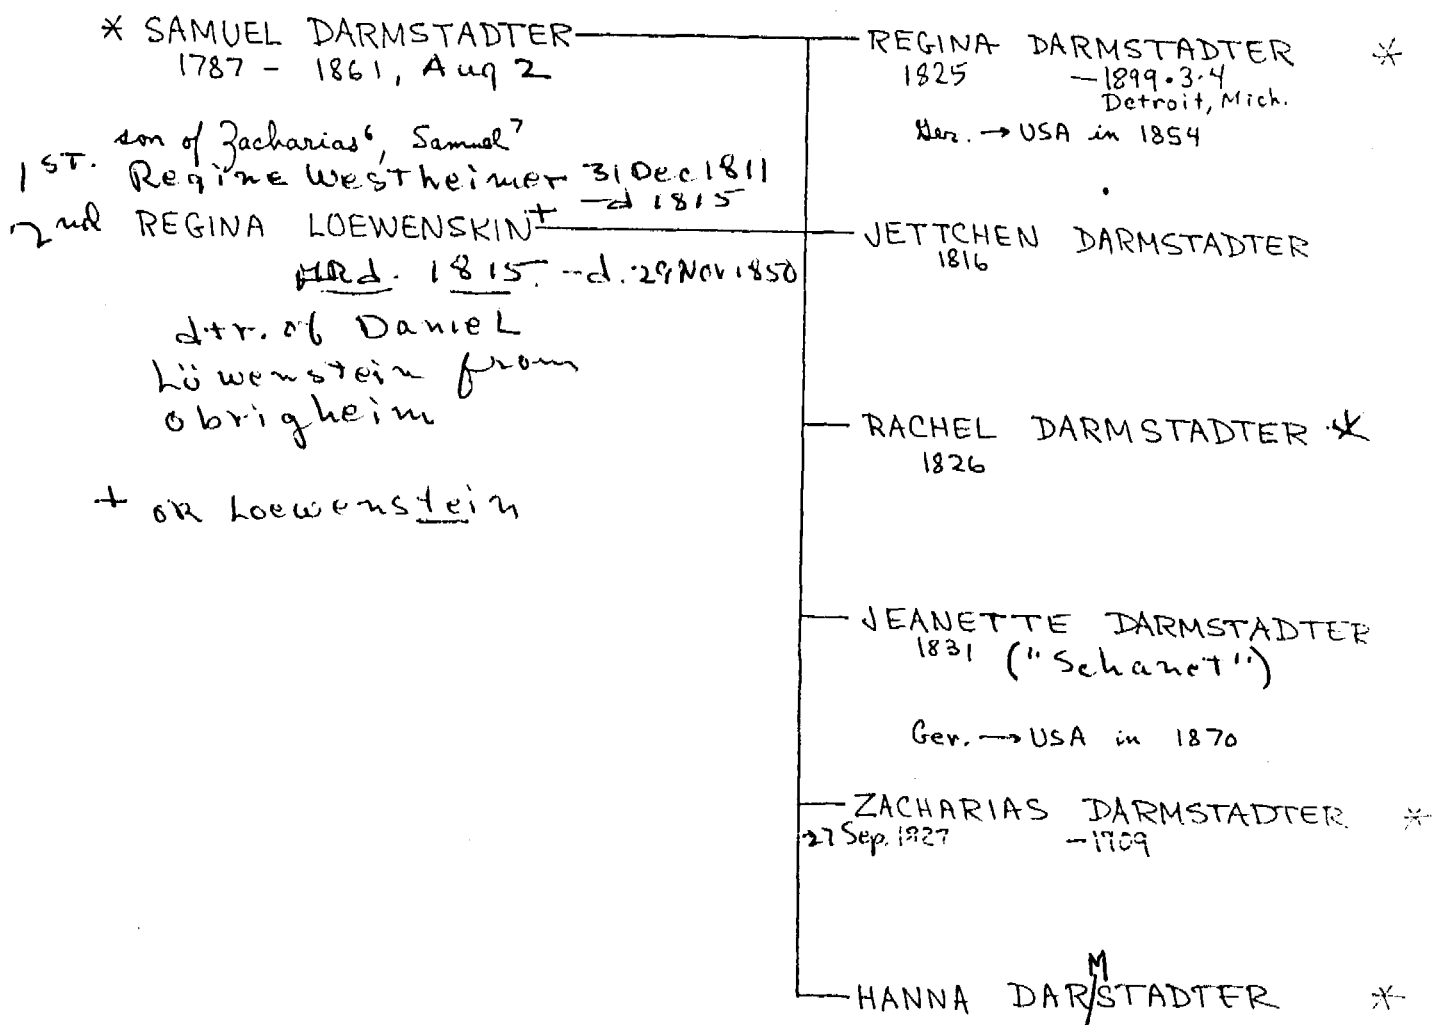 * SAMUEL DARMSTADTER
1787 - 1861, Aug 2
son of Zacharias⁶, Samuel⁷
1ST. Regine Westheimer 31 Dec 1811
—d 1815
2nd REGINA LOEWENSKIN+
MRd. 1815. -d. 29 Nov 1850
dtr. of Daniel
Löwenstein from
Obrigheim
+ OR Loewenstein
REGINA DARMSTADTER *
1825 —1899.3.4
Detroit, Mich.
Ger. → USA in 1854
JETTCHEN DARMSTADTER
1816
RACHEL DARMSTADTER *
1826
JEANETTE DARMSTADTER
1831 ("Schanet")
Ger. → USA in 1870
ZACHARIAS DARMSTADTER *
27 Sep. 1827 —1909
HANNA DARMSTADTER *